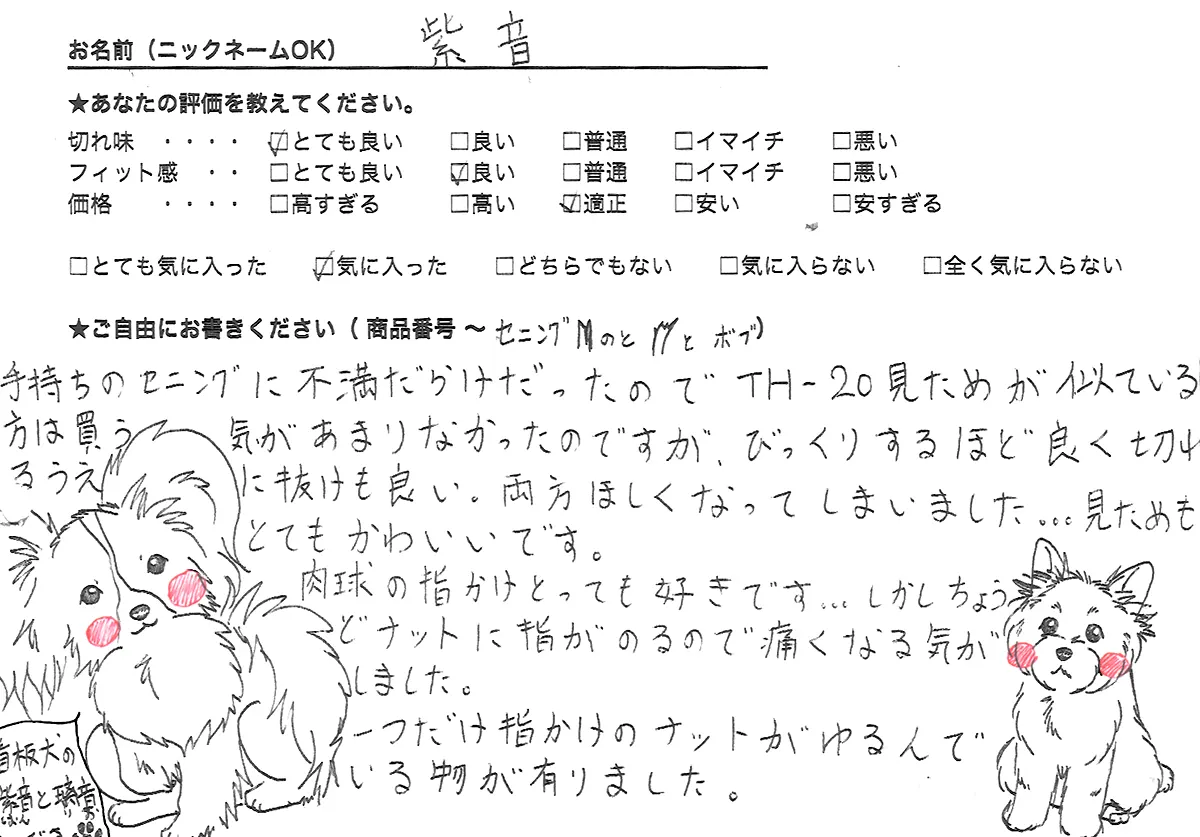 お名前（ニックネームOK） 紫音
★あなたの評価を教えてください。
切れ味 ・・・・ ☑とても良い □良い □普通 □イマイチ □悪い
フィット感 ・・ □とても良い ☑良い □普通 □イマイチ □悪い
価格 ・・・・ □高すぎる □高い ☑適正 □安い □安すぎる
□とても気に入った ☑気に入った □どちらでもない □気に入らない □全く気に入らない
★ご自由にお書きください（商品番号～ セニング のと と ボブ）
手持ちのセニングに不満だらけだったのでTH-20見ためが似ている
方は買う気があまりなかったのですが、びっくりするほど良く切れ
るうえに抜けも良い。両方ほしくなってしまいました...見ためも
とてもかわいいです。
肉球の指かけとっても好きです...しかしちょう
どナットに指がのるので痛くなる気が
しました。
一つだけ指かけのナットがゆるんで
いる物が有りました。
看板犬の
紫音と璃音